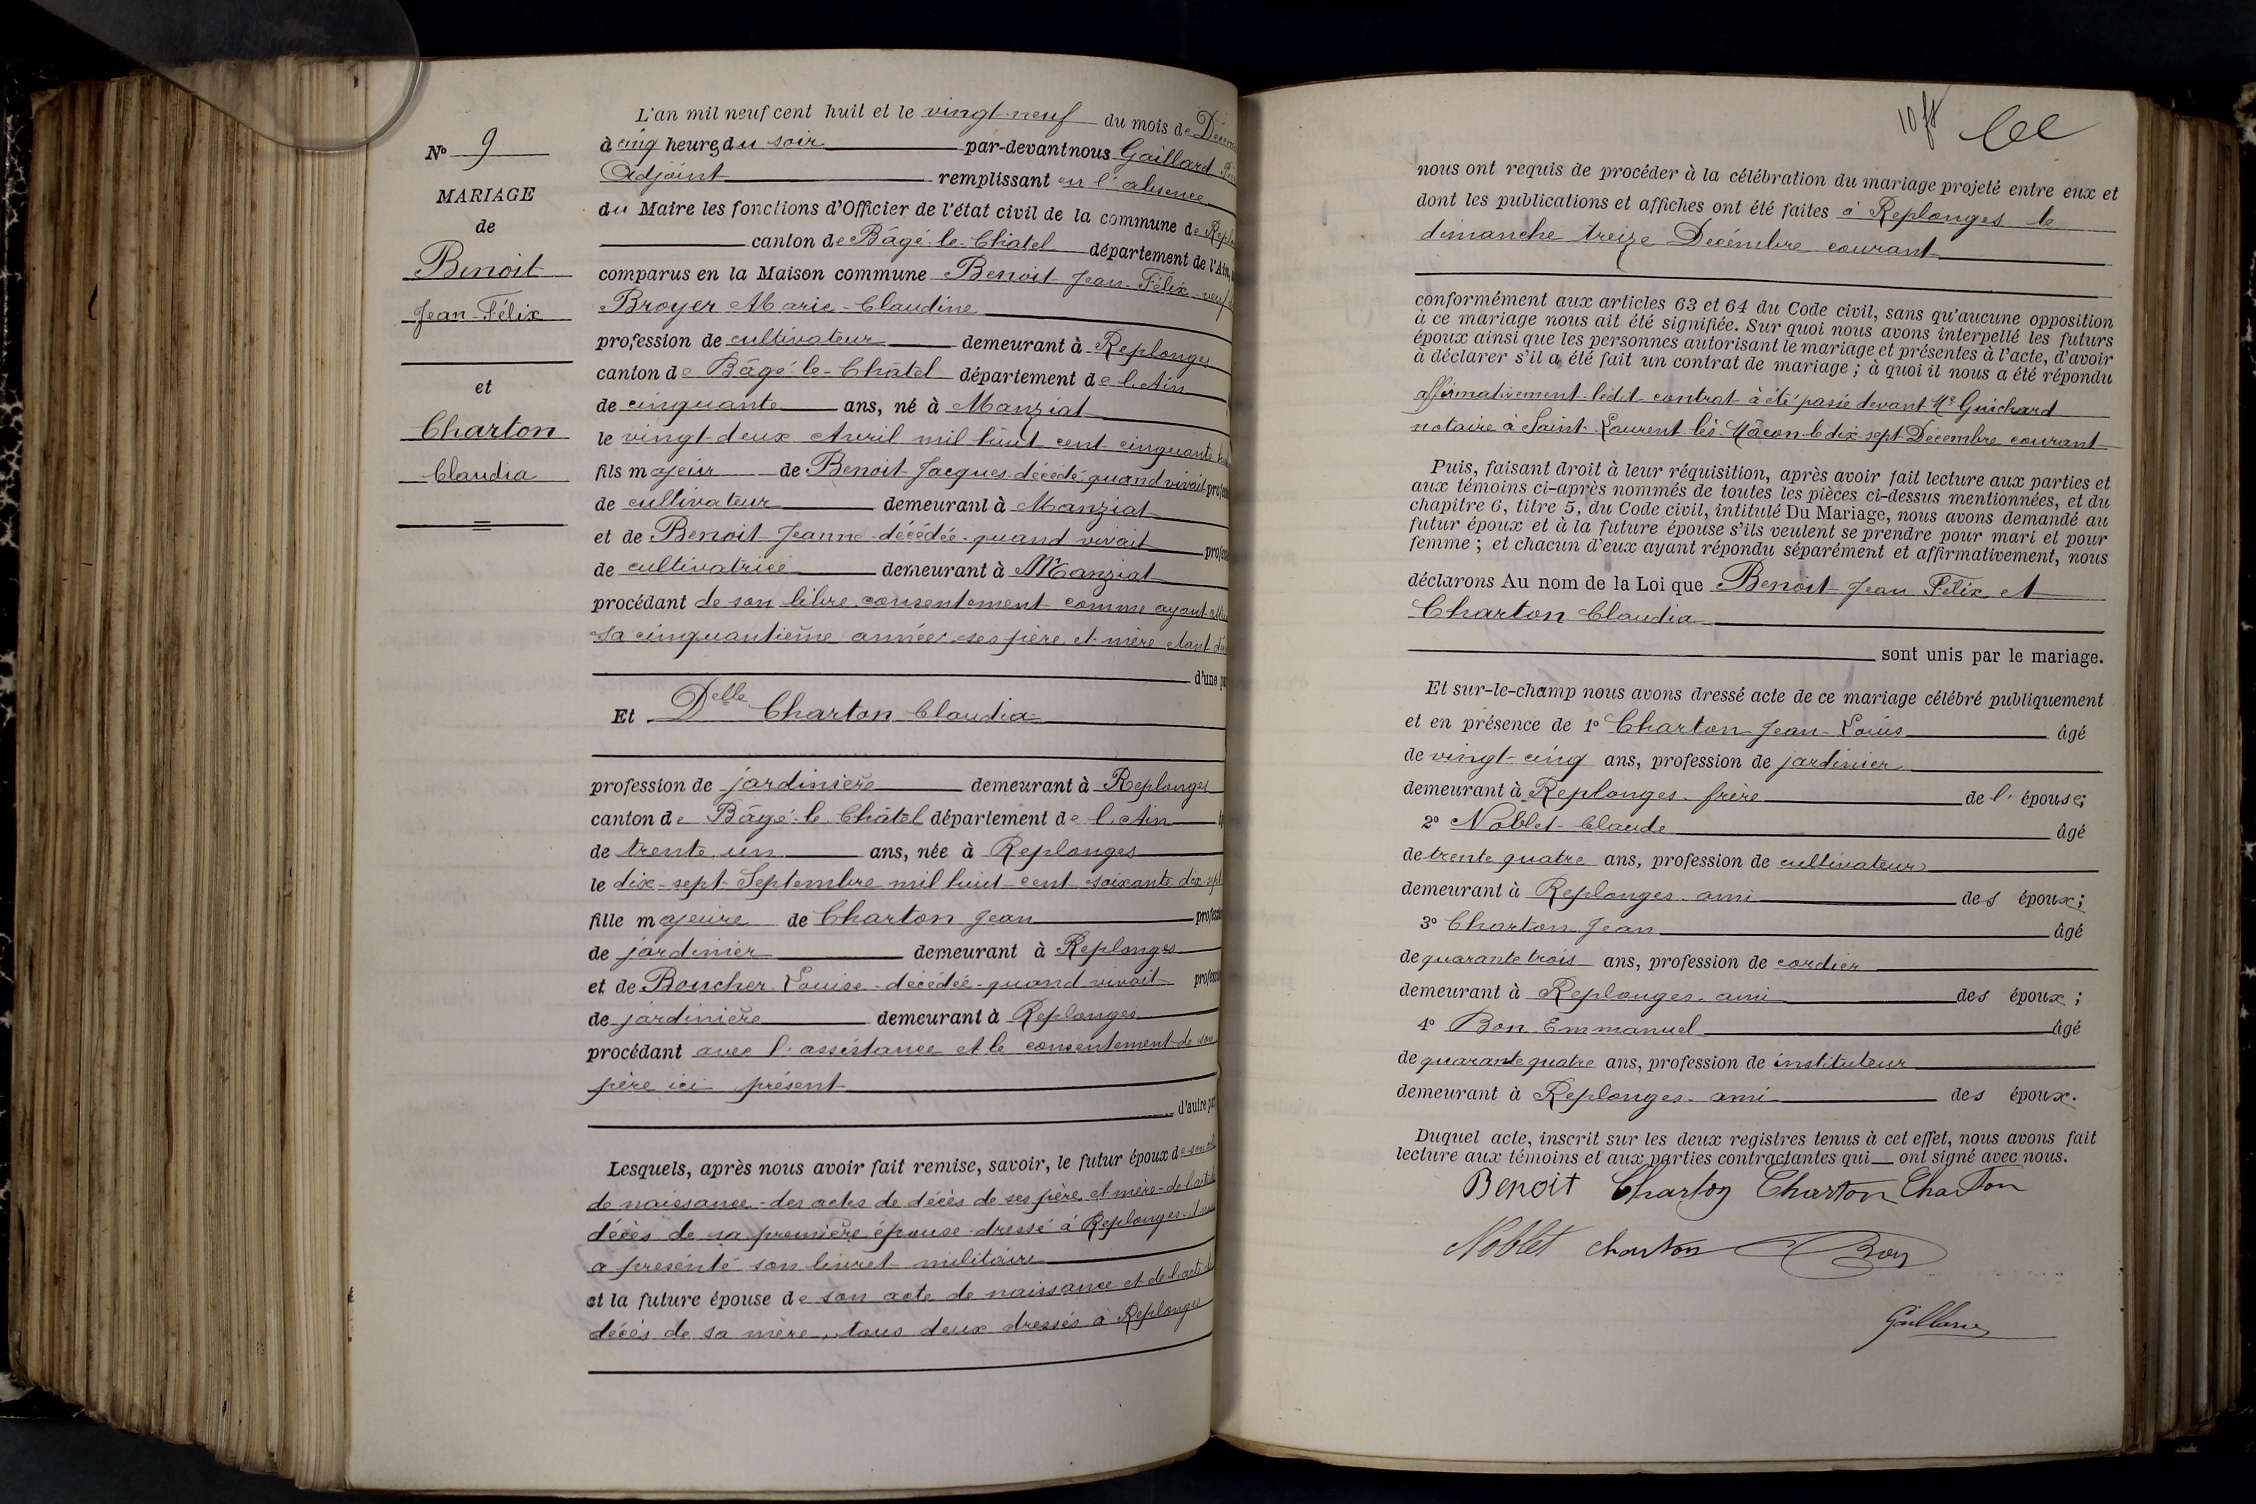 N° 9
MARIAGE
de
Benoit
Jean-Félix
et
Charton
Claudia
L'an mil neuf cent huit et le vingt-neuf du mois de
à cinq heures du soir par-devant nous Gaillard
Adjoint remplissant en l'absence
du Maire les fonctions d'Officier de l'état civil de la commune de
canton de Bâgé-le-Châtel département de l'Ain,
comparus en la Maison commune Benoit Jean-Félix veuf
Broyer Marie-Claudine
profession de cultivateur demeurant à Replonges
canton de Bâgé-le-Châtel département de l'Ain
de cinquante ans, né à Manziat
le vingt-deux Avril mil huit cent cinquante
fils majeur de Benoit Jacques décédé quand vivait
de cultivateur demeurant à Manziat
et de Benoit Jeanne décédée quand vivait
de cultivatrice demeurant à Manziat
procédant de son libre consentement comme ayant
sa cinquantième année, ses père et mère étant
d'une
Et Delle Charton Claudia
profession de jardinière demeurant à Replonges
canton de Bâgé-le-Châtel département de l'Ain
de trente un ans, née à Replonges
le dix-sept Septembre mil huit cent soixante dix-sept
fille majeure de Charton Jean
de jardinier demeurant à Replonges
et de Boucher Louise décédée quand vivait
de jardinière demeurant à Replonges
procédant avec l'assistance et le consentement de son
père ici présent
d'autre
Lesquels, après nous avoir fait remise, savoir, le futur époux de son
de naissance - des actes de décès de ses père et mère - de l'acte
décès de sa première épouse dressé à Replonges
a présenté son livret militaire
et la future épouse de son acte de naissance et de l'acte
décès de sa mère, tous deux dressés à Replonges
nous ont requis de procéder à la célébration du mariage projeté entre eux et
dont les publications et affiches ont été faites à Replonges le
dimanche treize Décembre courant
conformément aux articles 63 et 64 du Code civil, sans qu'aucune opposition
à ce mariage nous ait été signifiée. Sur quoi nous avons interpellé les futurs
époux ainsi que les personnes autorisant le mariage et présentes à l'acte, d'avoir
à déclarer s'il a été fait un contrat de mariage ; à quoi il nous a été répondu
affirmativement ledit contrat à été passé devant Me Guichard
notaire à Saint-Laurent-lès-Mâcon le dix-sept Décembre courant
Puis, faisant droit à leur réquisition, après avoir fait lecture aux parties et
aux témoins ci-après nommés de toutes les pièces ci-dessus mentionnées, et du
chapitre 6, titre 5, du Code civil, intitulé Du Mariage, nous avons demandé au
futur époux et à la future épouse s'ils veulent se prendre pour mari et pour
femme ; et chacun d'eux ayant répondu séparément et affirmativement, nous
déclarons Au nom de la Loi que Benoit Jean Félix et
Charton Claudia
sont unis par le mariage.
Et sur-le-champ nous avons dressé acte de ce mariage célébré publiquement
et en présence de 1° Charton Jean-Louis âgé
de vingt-cinq ans, profession de jardinier
demeurant à Replonges frère de l'épouse;
2° Noblet Claude âgé
de trente quatre ans, profession de cultivateur
demeurant à Replonges ami des époux;
3° Charton Jean âgé
de quarante trois ans, profession de cordier
demeurant à Replonges ami des époux ;
4° Bon Emmanuel âgé
de quarante quatre ans, profession de instituteur
demeurant à Replonges ami des époux.
Duquel acte, inscrit sur les deux registres tenus à cet effet, nous avons fait
lecture aux témoins et aux parties contractantes qui ont signé avec nous.
Benoit Charton Charton Charton
Noblet charton Bon
Gaillard